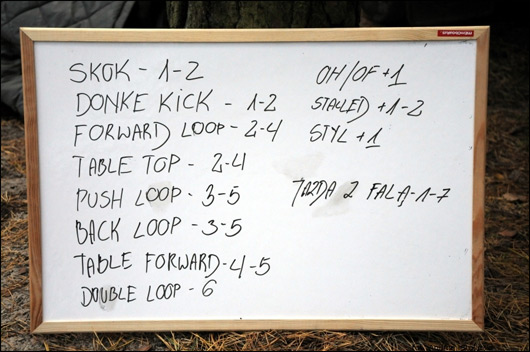 SKOK - 1-2
DONKE KICK - 1-2
FORWARD LOOP - 2-4
TABLE TOP - 2-4
PUSH LOOP - 3-5
BACK LOOP - 3-5
TABLE FORWARD - 4-5
DOUBLE LOOP - 6
OH/OF +1
STALLED +1-2
STYL +1
JAZDA Z FALĄ -1-7